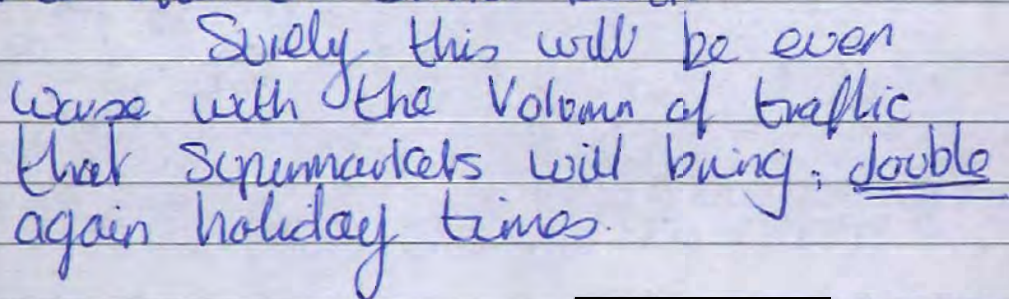 Surely this will be even
worse with the Volumn of traffic
that Supermarkets will bring, double
again holiday times.